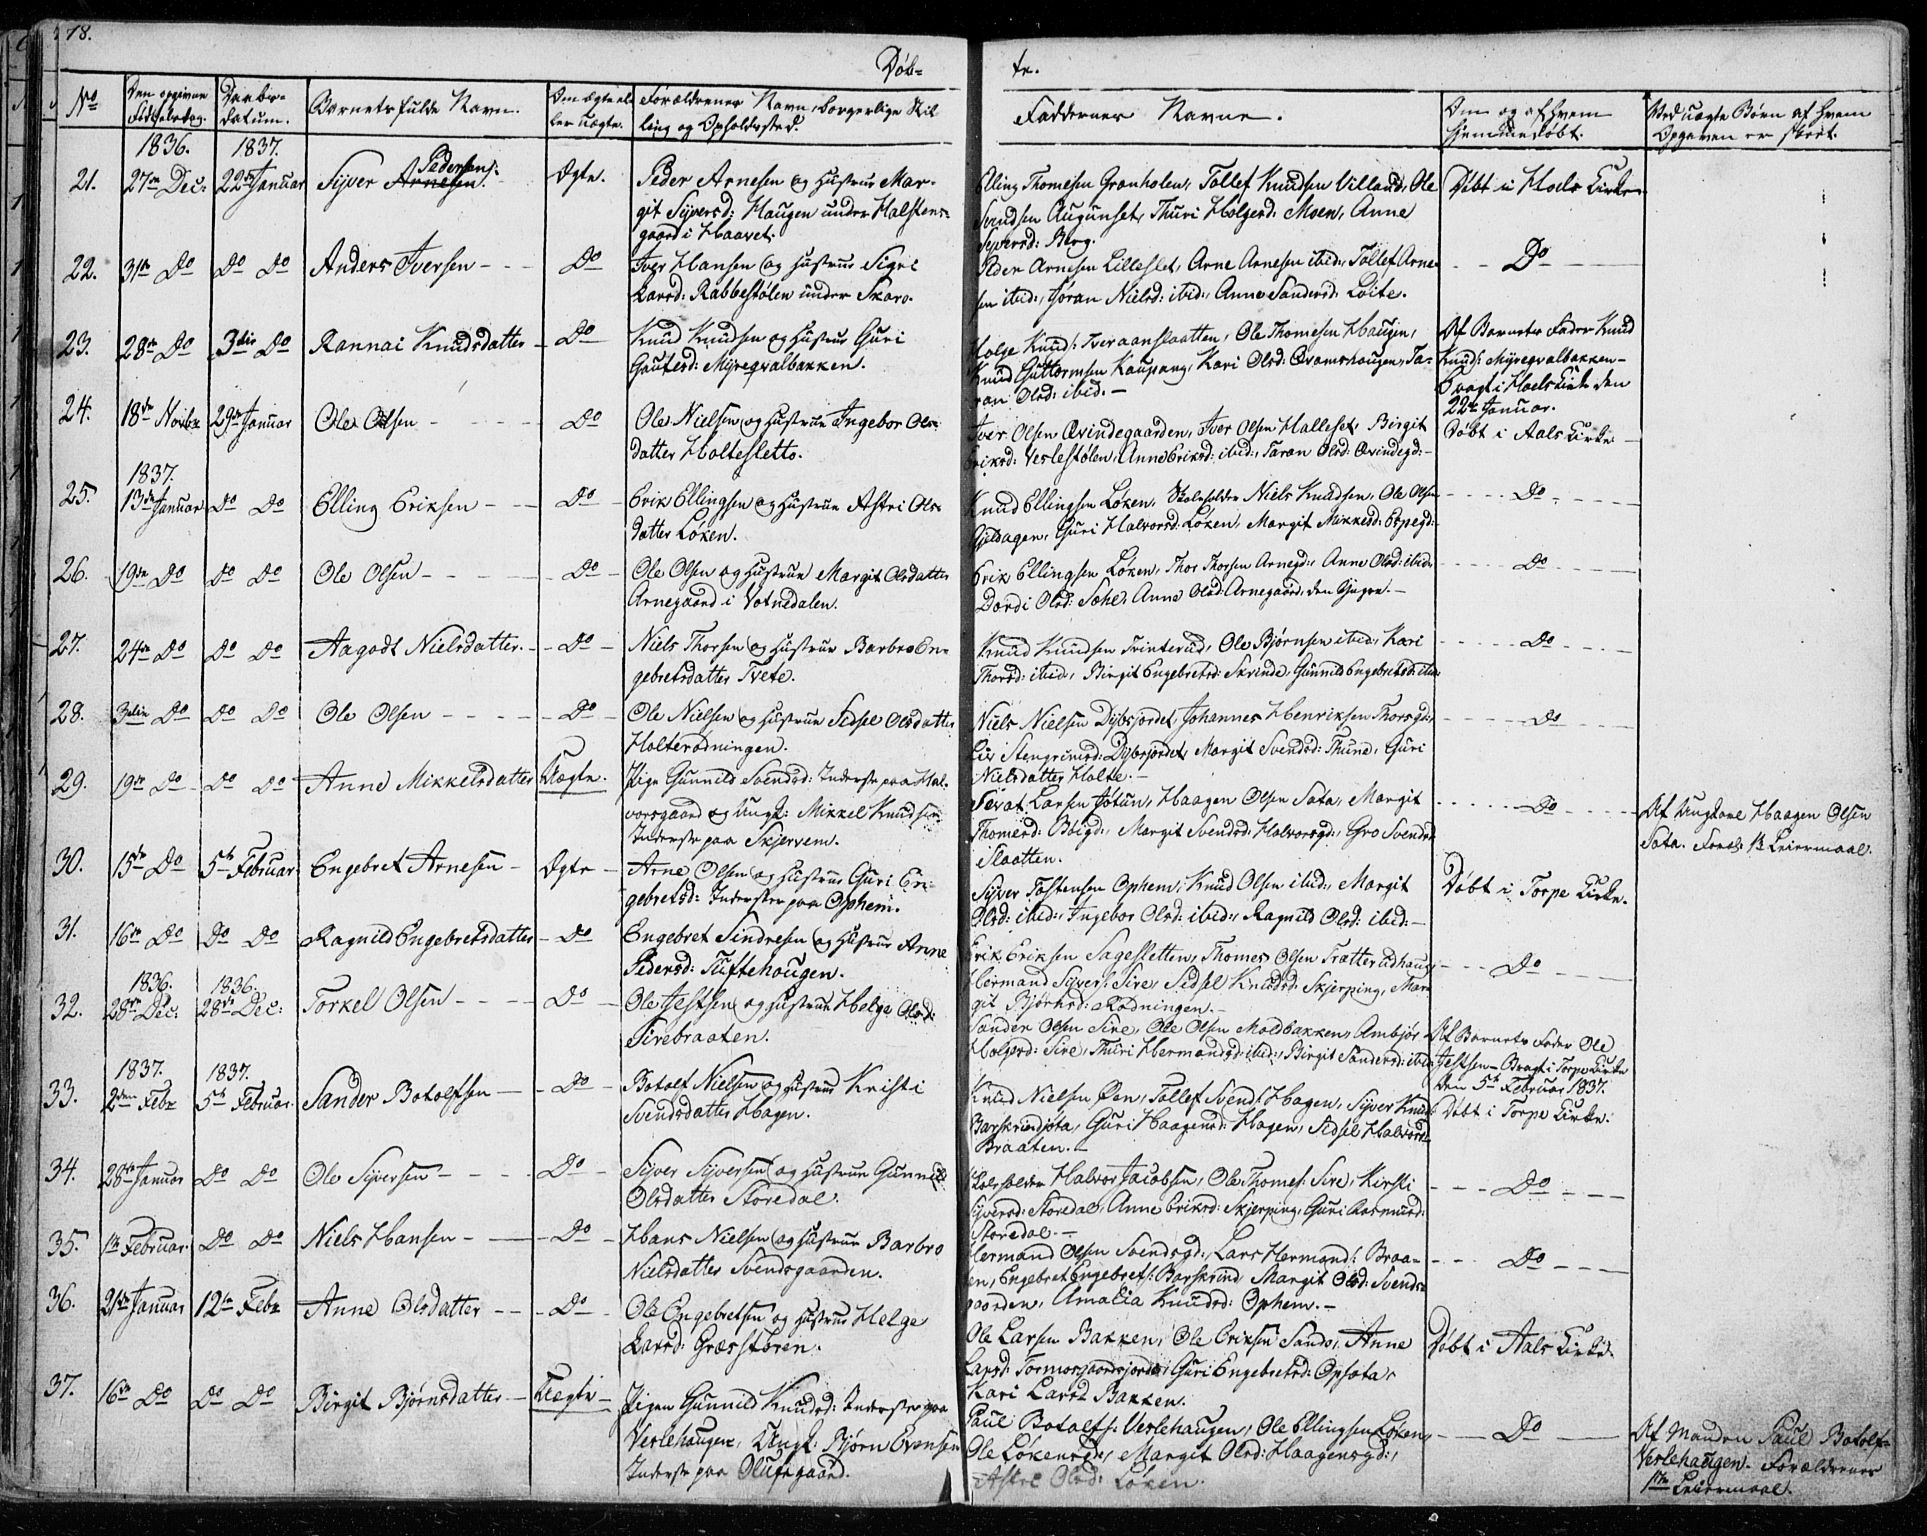 78.
Døb=
te.
No
Den opgivne Fødselsdag.
Daabs-datum.
Barnets fulde Navn.
Om ægte el=ler uægte.
Forældrenes Navn, borgerlige Stil=ling og Opholdssted.
Faddernes Navne.
Om og af hvem hjemmedøbt.
Ved uægte Børn af hvem Opgaven er skeet.
1836. 1837.
21. 27de Dec: 22de Januar Syver Arnesen. Pedersen. Ægte.
Peder Arnesen og Hustrue Mar=
git Syversd: Haugen under Halstens=
gaard i Haavet.
Elling Thomesen Granholen, Tollef Knudsen Villand, Ole
Svendsen Augunset, Thuri Holgersd. Moen, Anne
Syversd: Berg.
Døbt i Hols Kirke
22. 31te Do Do Do Anders Iversen - Do
Iver Hansen og Hustrue Sigri
Larsd: Rabbestølen under Skaro.
Peder Arnesen Lilleslet, Arne Arnesen ibid:, Tollef Arne=
sen ibid:, Gøran Nielsd: ibid:, Anne Sandersd: Loite.
Do
23. 28de Do 3die Do Rannai Knudsdatter - Do
Knud Knudsen og Hustrue Guri
Gautesd: Myregvalbakken.
Holge Knuds: Tveraanslaatten, Ole Thomesen Haugen,
Knud Guttormsen Kaupang, Kari Olsd: Qvamshaugen, Ta=
ran Olsd: ibid. -
Af Barnets Fader Knud
Knuds: Myregvalbakken -
Bragt i Hols Kirke den
22de Januar.
24. 18de Novbr 29de Januar Ole Olsen - Do
Ole Nielsen og Hustrue Ingebor Ols=
datter Holtesletto.
Iver Olsen Qvindegaarden, Iver Olsen Halleset, Birgit
Eriksd: Veslestølen, Anne Eriksd: ibid:, Taran Olsd: Qvindegd: -
Døbt i Aals Kirke
1837.
25. 13de Januar Do Do Elling Eriksen - Do
Erik Ellingsen og Hustrue Astri Ols=
datter Løken.
Knud Ellingsen Løken, Skoleholder Niels Knudsen, Ole Olsen
Gjeldagen, Guri Halvorsd: Løken, Margit Mikkelsd: Espegd:
Do
26. 19de Do Do Do Ole Olsen - Do
Ole Olsen og Hustrue Margit Olsdatter
Arnegaard i Votnedalen.
Erik Ellingsen Løken, Thor Thorsen Arnegd:, Anne Olsd: ibid:
Dordi Olsd: Søhe, Anne Olsd: Arnegaard, den Yngre. -
Do
27. 24de Do Do Do Aagodt Nielsdatter. - Do
Niels Thorsen og Hustrue Barbro En=
gebretsdatter Tvete.
Knud Knudsen Trinterud, Ole Bjørnsen ibid:, Kari
Thorsd: ibid:, Birgit Engebretsd: Skrinde, Gunnild Engebretsd: ibid:
Do
28. 3die Do Do Do Ole Olsen - Do
Ole Nielsen og Hustrue Sidsel Olsdatter
Holterødningen.
Niels Nielsen Dybsjordet, Johannes Henriksen Thorsgd:
Liv Stengrimsd: Dybsjordet, Margit Svendsd: Thune, Guri
Nielsdatter Holte. -
Do
29. 19de Do Do Do Anne Mikkelsdatter Uægte.
Pige Gunnild Svendsd: Inderst paa Hal=
vorsgaard og Ungk: Mikkel Knudsen
Inderst paa Skjervem.
Sevat Larsen Gøtun, Haagen Olsen Sata, Margit
Thomesd: Boigd:, Margit Svendsd: Halvorsgd:, Gro Svendsd:
Slaatten.
Do
Af Ungkarl Haagen Olsen
Sata. Foreld: 1te Leiermaal.
30. 15de Do 5te Februar Engebret Arnesen - Ægte
Arne Olsen og Hustrue Guri En=
gebretsd: Inderster paa Ophem.
Syver Tostensen Ophem, Knud Olsen ibid:, Margit
Olsd: ibid:, Ingebor Olsd: ibid:, Ragnild Olsd: ibid: -
Døbt i Torpe Kirke.
31. 16de Do Do Do Ragnild Engebretsdatter - Do
Engebret Sindresen og Hustrue Anne
Pedersd: Tuftehaugen.
Erik Eriksen Sagesletten, Thomes Olsen Tratterudhaug:
Hermand Syvers: Sire, Sidsel Knudsd: Skjerping, Mar=
git Bjørnsd: Rødningen. -
Do
1836. 1836.
32. 28de Dec: 28de Dec: Torkel Olsen - Do
Ole Jestsen og Hustrue Helge Olsd:
Sirebraaten.
Sander Olsen Sire, Ole Olsen Moldbakken, Ambjør
Holgersd: Sire, Thuri Hermandsd: ibid:, Birgit Sandersd: ibid:
Af Barnets Fader Ole
Jestsen - Bragt i Torpe Kirke
den 5te Februar 1837.
1837. 1837.
33. 2den Febr 5te Februar Sander Botolfsen - Do
Botolf Nielsen og Hustrue Kristi
Svendsdatter Hagen.
Knud Nielsen Øen, Tollef Svends: Hagen, Syver Knuds:
Barskrindjota, Guri Haagensd: Hagen, Sidsel Halvorsd:
Braaten. -
Døbt i Torpe Kirke.
34. 28de Januar Do Do Ole Syversen - Do
Syver Syversen og Hustrue Gunnild
Olsdatter Storedal.
Skoleholder Halvor Jacobsen, Ole Thomes: Sire, Kirsti
Syversd: Storedal, Anne Eriksd: Skjerping, Guri Aasmundsd:
Storedal. -
Do
35. 1te Februar Do Do Niels Hansen - Do
Hans Nielsen og Hustrue Barbro
Nielsdatter Svendsgaarden.
Hermand Olsen Svendsgd:, Lars Hermands: Braa=
ten, Engebret Engebrets: Barskrind, Margit Olsd: Svends=
gaarden, Amalia Knudsd: Ophem. -
Do
36. 21de Januar 12te Febr Anne Olsdatter - Do
Ole Engebretsen og Hustrue Helge
Larsd: Græsstøren.
Ole Larsen Bakken, Ole Eriksen Sando, Anne
Larsd: Tormosgaardsjordet, Guri Engebretsd: Opsata,
Kari Larsd Bakken.
Døbt i Aals Kirke.
37. 16de Do Do Do Birgit Bjørnsdatter - Uægte -
Pigen Gunnild Knudsd: Inderst paa
Veslehaugen, Ungk: Bjørn Evensen
Inderst paa Olufsgaard.
Paul Botolfs: Veslehaugen, Ole Ellingsen Løken,
Ole Løkensgd:, Margit Olsd: Haagensgd:,
Astri Olsd: Løken.
Do
Af Manden Paul Botolfs=
Veslehaugen. Forældrenes
1te Leiermaal.